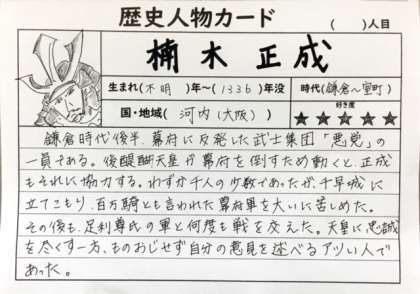 歴史人物カード
(　　)人目
楠木 正成
生まれ(不明)年~(1336)年没
時代(鎌倉~室町)
国・地域(河内(大阪))
好き度
★★★★★
鎌倉時代後半、幕府に反発した武士集団「悪党」の
一員である。後醍醐天皇が幕府を倒すため動くと、正成
もそれに協力する。わずか千人の少数であったが、千早城に
立てこもり、百万騎とも言われた幕府軍を大いに苦しめた。
その後も、足利尊氏の軍と何度も戦を交えた。天皇に忠誠
を尽くす一方、ものおじせず自分の意見を述べるアツい人で
あった。